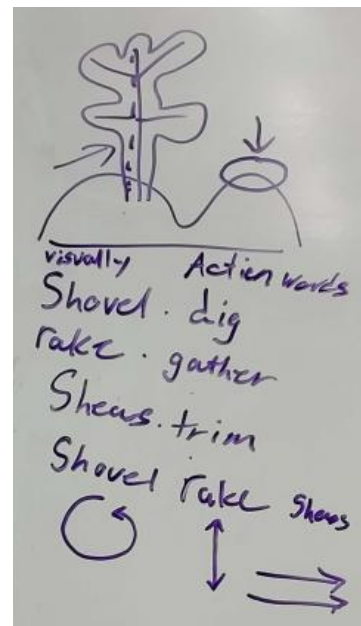 visually Action words
Shovel . dig
rake . gather
Shears . trim
Shovel rake Shears